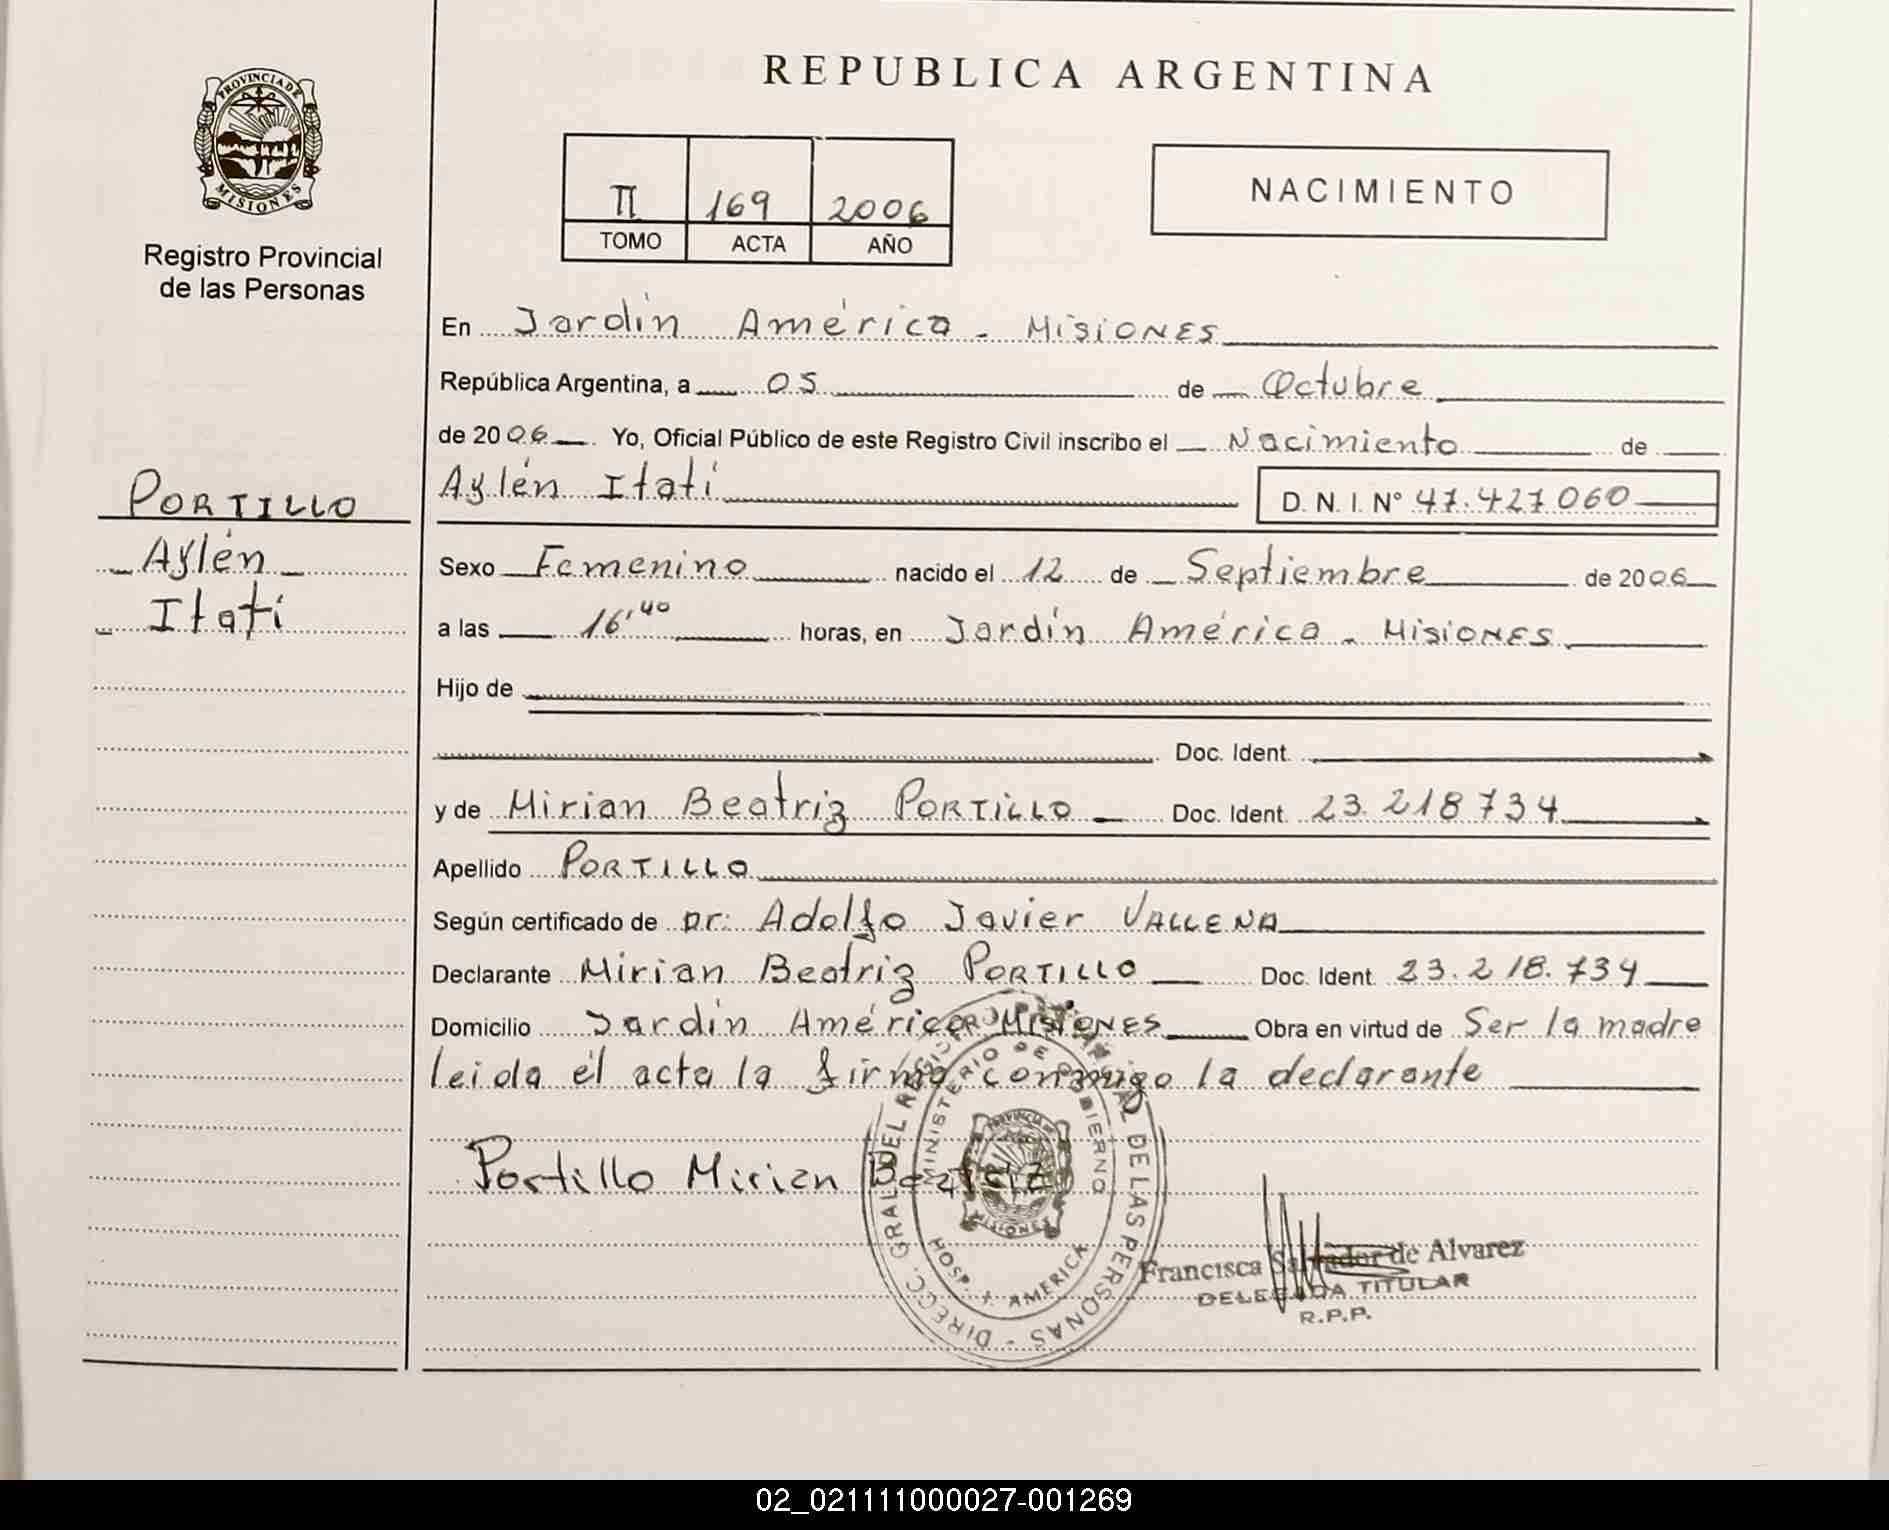 REPUBLICA ARGENTINA
PROVINCIA DE
MISIONES
Registro Provincial
de las Personas
II 169 2006
TOMO ACTA AÑO
NACIMIENTO
En Jardín América - Misiones
República Argentina, a 05 de Octubre
de 2006. Yo, Oficial Público de este Registro Civil inscribo el Nacimiento de
Aylén Itatí D. N. I. N° 47.427.060
PORTILLO
Aylén
Itatí
Sexo Femenino nacido el 12 de Septiembre de 2006
a las 16,40 horas, en Jardín América - Misiones
Hijo de
Doc. Ident.
y de Mirian Beatriz PORTILLO Doc. Ident. 23.218734
Apellido PORTILLO
Según certificado de Dr: Adolfo Javier VALLENA
Declarante Mirian Beatriz PORTILLO Doc. Ident. 23.218.734
Domicilio Jardín América Misiones Obra en virtud de Ser la madre
leida él acta la firma conmigo la declarante
Portillo Mirian Beatriz
DIRECC. GRAL. DEL REGISTRO PROVINCIAL DE LAS PERSONAS -
MINISTERIO DE GOBIERNO
PROVINCIA DE
MISIONES
HOSP. J. AMERICA
Francisca Salvador de Alvarez
DELEGADA TITULAR
R.P.P.
02_021111000027-001269